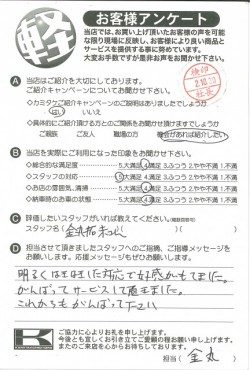 軽
お客様アンケート
当店では、お買い上げ頂いたお客様の声を可能
な限り現場に反映し、お客様により良い商品と
サービスを提供する事に努めています。
大変お手数ですが是非お声をお聞かせ下さい。
A 当店はご紹介を大切にしております。
ご紹介キャンペーンについてお聞かせ下さい。
◇カミタケご紹介キャンペーンのご説明はありましたでしょうか
はい いいえ
◇具体的にご紹介頂ける方とのご関係をお聞かせ頂けますでしょうか
ご親族 ご友人 職場の方 機会があれば紹介したい
B 当店をご利用になった印象をお聞かせ下さい。
◇総合的な満足度 5.大満足 4.満足 3.ふつう 2.やや不満 1.不満
◇スタッフの対応 5.大満足 4.満足 3.ふつう 2.やや不満 1.不満
◇お店の雰囲気、清掃 5.大満足 4.満足 3.ふつう 2.やや不満 1.不満
◇納車時のお車の状態 5.大満足 4.満足 3.ふつう 2.やや不満 1.不満
C 評価したいスタッフがいれば教えてください。
スタッフ名( 金丸
D 担当させて頂きましたスタッフへのご指摘、ご指導メッセージを
お願いします。応援メッセージもぜひお願いします。
明るくはきはきした対応で好感がもてました。
がんばってサービスして頂きました。
これからもがんばって下さい
K
ご協力に心よりお礼を申し上げます。
今後とも宜しくお引き立てご愛顧の程お願い申し上げます。
またのご来店を心からお待ちしております。
担当( 金丸 )